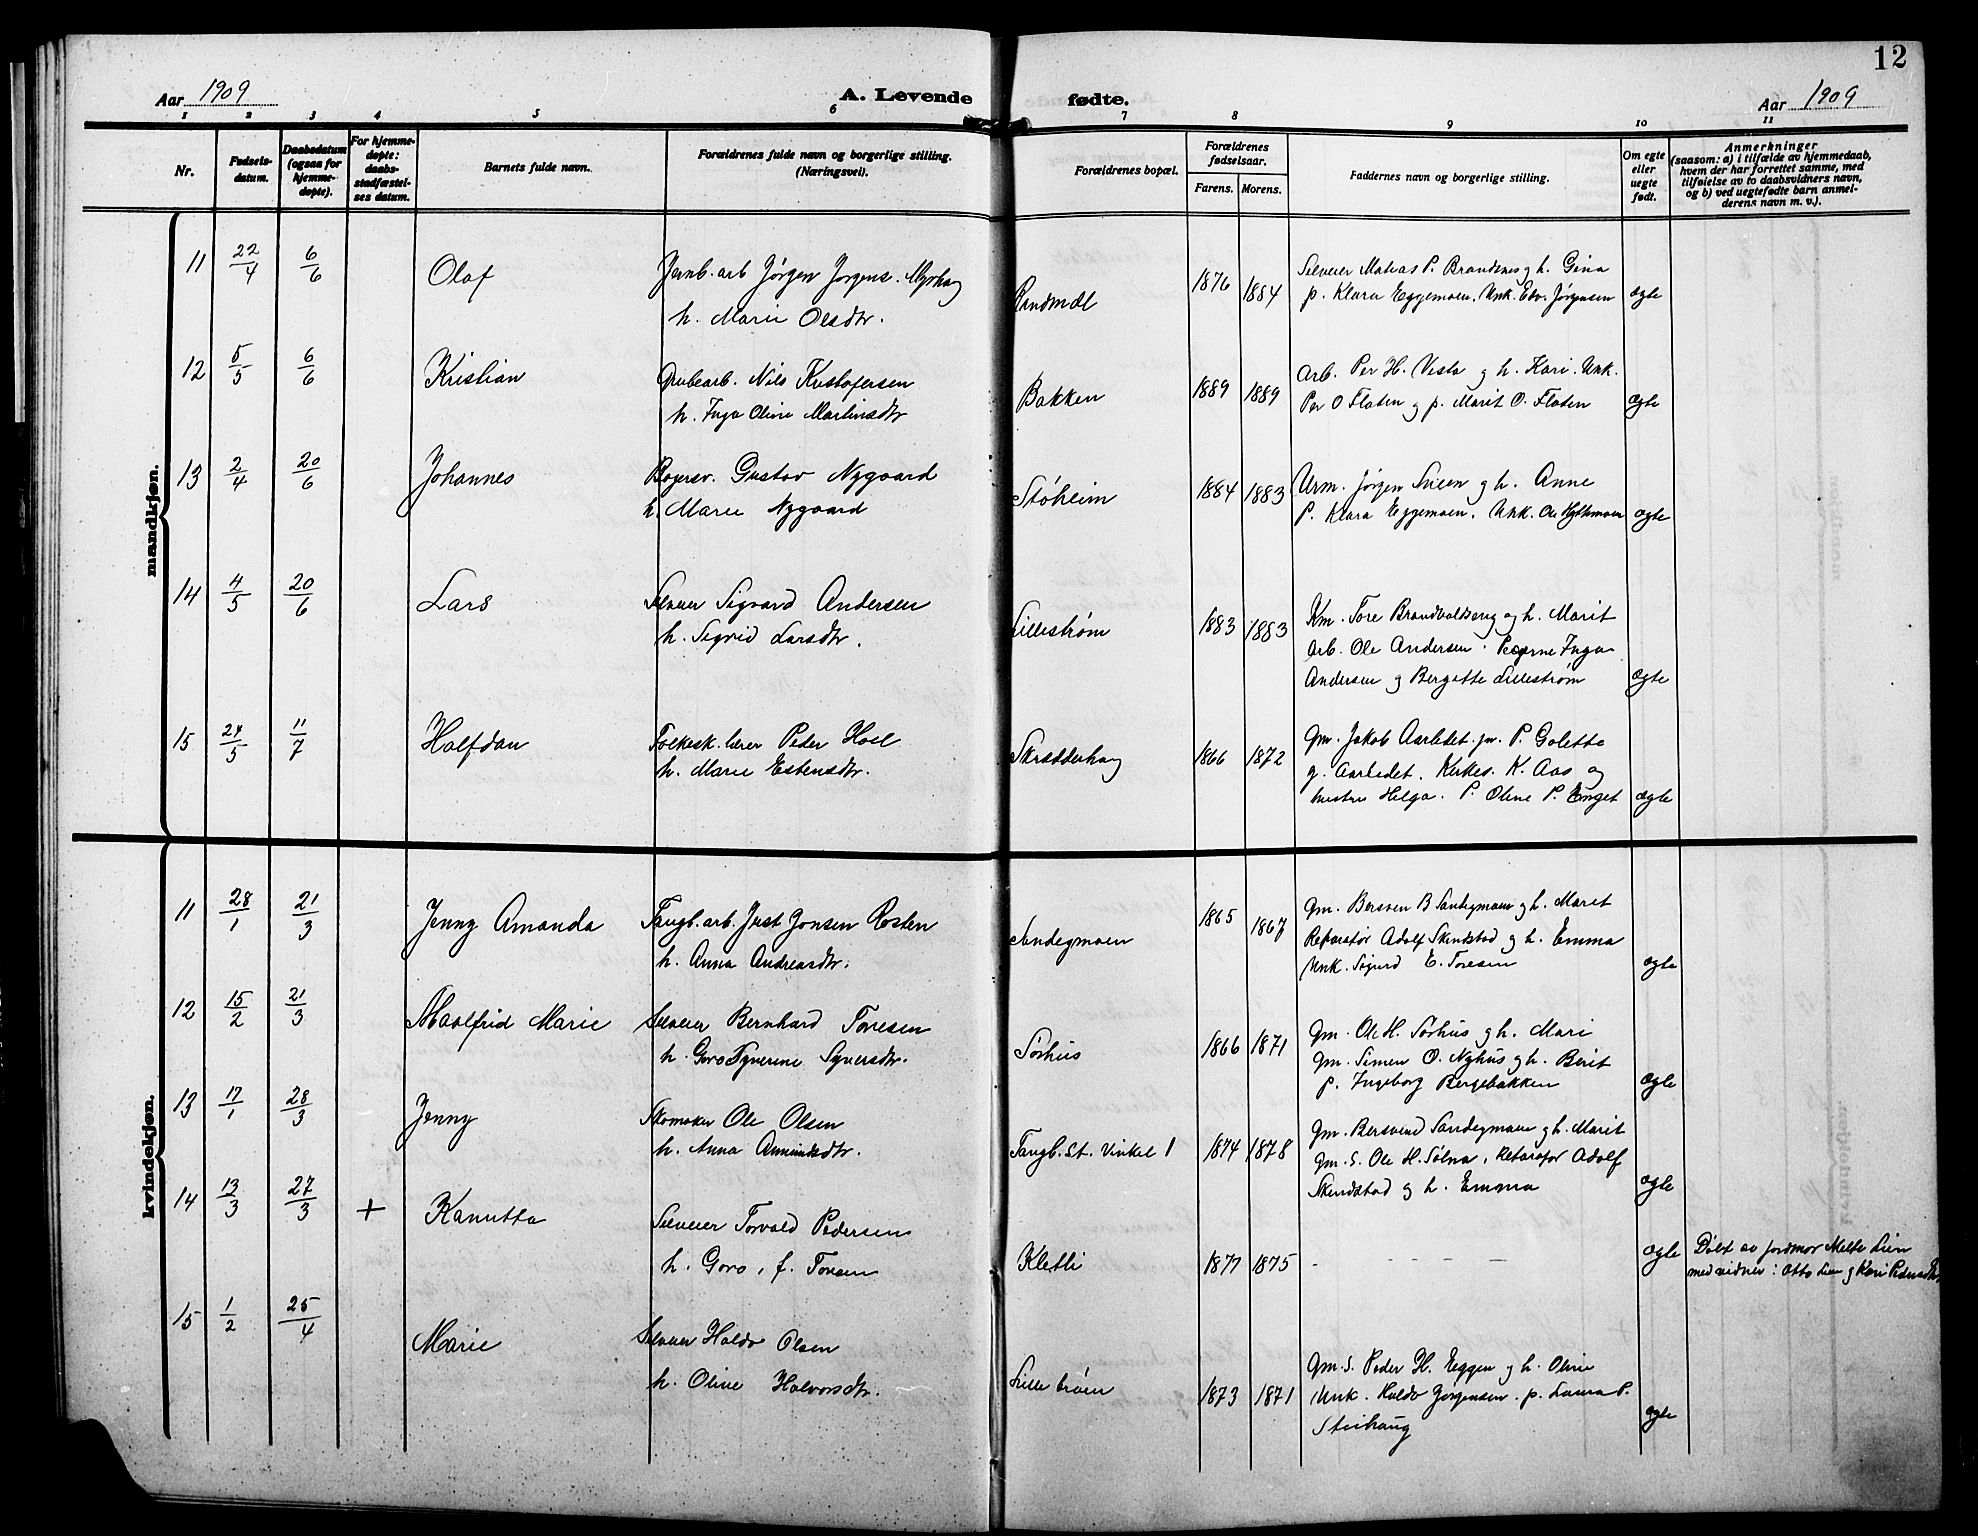 12
Aar 1909
A. Levende fødte.
Aar 1909
1 2 3 4 5 6 7 8 9 10 11
Nr.
Fødsels-
datum.
Daabsdatum
(ogsaa for
hjemme-
døpte).
For hjemme-
døpte:
daabs-
stadfæstel-
ses datum.
Barnets fulde navn.
Forældrenes fulde navn og borgerlige stilling.
(Næringsvei).
Forældrenes bopæl.
Forældrenes
fødselsaar.
Farens. Morens.
Faddernes navn og borgerlige stilling.
Om egte
eller
uegte
født.
Anmerkninger
(saasom: a) i tilfælde av hjemmedaab,
hvem der har forrettet samme, med
tilføielse av to daabsvidners navn,
og b) ved uegtefødte barn anmel-
derens navn m. v.).
mandkjøn.
11 22/4 6/6 Olaf
Jernb. arb Jørgen Jørgens. Myrhaug
h. Marie Olsdtr.
1876 1884
Selveier Matias P. Brandsnes g h. Gina
p. Klara Eggemoen. Unk. Edv. Jørgensen
egte
12 5/5 6/6 Kristian
Grubearb. Nils Kristofersen
h. Inga Oline Martinsdtr
Bakken
1889 1889
Arb. Per H. Vesta g h. Kari. Unk.
Per O Floten g p. Marit O. Floten
egte
13 2/4 20/6 Johannes
Bagersv. Gustav Nygaard
h. Marie Nygaard
Støheim
1884 1883
Urm. Jørgen Sveen g h. Anne
P. Klara Eggemoen. Unk. Ole
egte
14 4/5 20/6 Lars
Selveier Sigvard Andersen
h. Sigrid Larsdtr.
Lillestrøm
1883 1883
Km. Tore Brandvoldseng og h. Marit
Arb. Ole Andersen. Pigerne Inga
Andersen g Bergette Lillestrøm
egte
15 24/5 11/7 Halfdan
Folkesk. lærer Peder Hoel
h. Marie Estensdtr.
Skrædderhaug
1866 1872
Gm. Jakob Aarledet. P. Golette
g. Aarledet. Kirkes. K. Aas og
hustru Helga. P. Oline P. Enget
egte
kvindekjøn.
11 28/1 21/3 Jenny Amanda
Tangb. arb. Just Jonsen Rosten
h. Anna Andreasdtr.
Sandegmoen
1865 1867
Gm. Bersven B Sandegmoen g h. Marit
Reparatør Adolf Skindstad g h. Emma
Unk. Sigurd E. Toresen
egte
12 15/2 21/3 Maalfrid Marie
Selveier Bernhard Toresen
h. Goro Syverine Syversdtr.
Sørhus
1866 1871
Gm. Ole H. Sørhus g h. Mari
Gm. Simen O. Nyhus g h. Berit
p. Ingeborg Bergebakken
egte
13 17/1 28/3 Jenny
Skomaker Ole Olsen
h. Anna Amundsdtr.
Tangb. St. Vinkel 1
1874 1878
Gm. Bersvend Sandegmoen g h. Marit
Gm. S. Ole H. Sølna, Reparatør Adolf
Skindstad g h. Emma
egte
14 13/3 27/3 + Kanutta
Selveier Torvald Pedersen
h. Goro, f. Toresen
Kletti
1877 1875
- - - - -
egte
Døbt av jordmor Mette Lien
med vidner: Otto Lien g Kari Pedersdtr
15 1/2 25/4 Marie
Selveier Haldo Olsen
h. Oline Halvorsdtr.
1873 1871
Gm. S. Peder H. Eggen g h. Oline
Unk. Haldo Jørgensen. p. Laura P.
Steihaug
egte